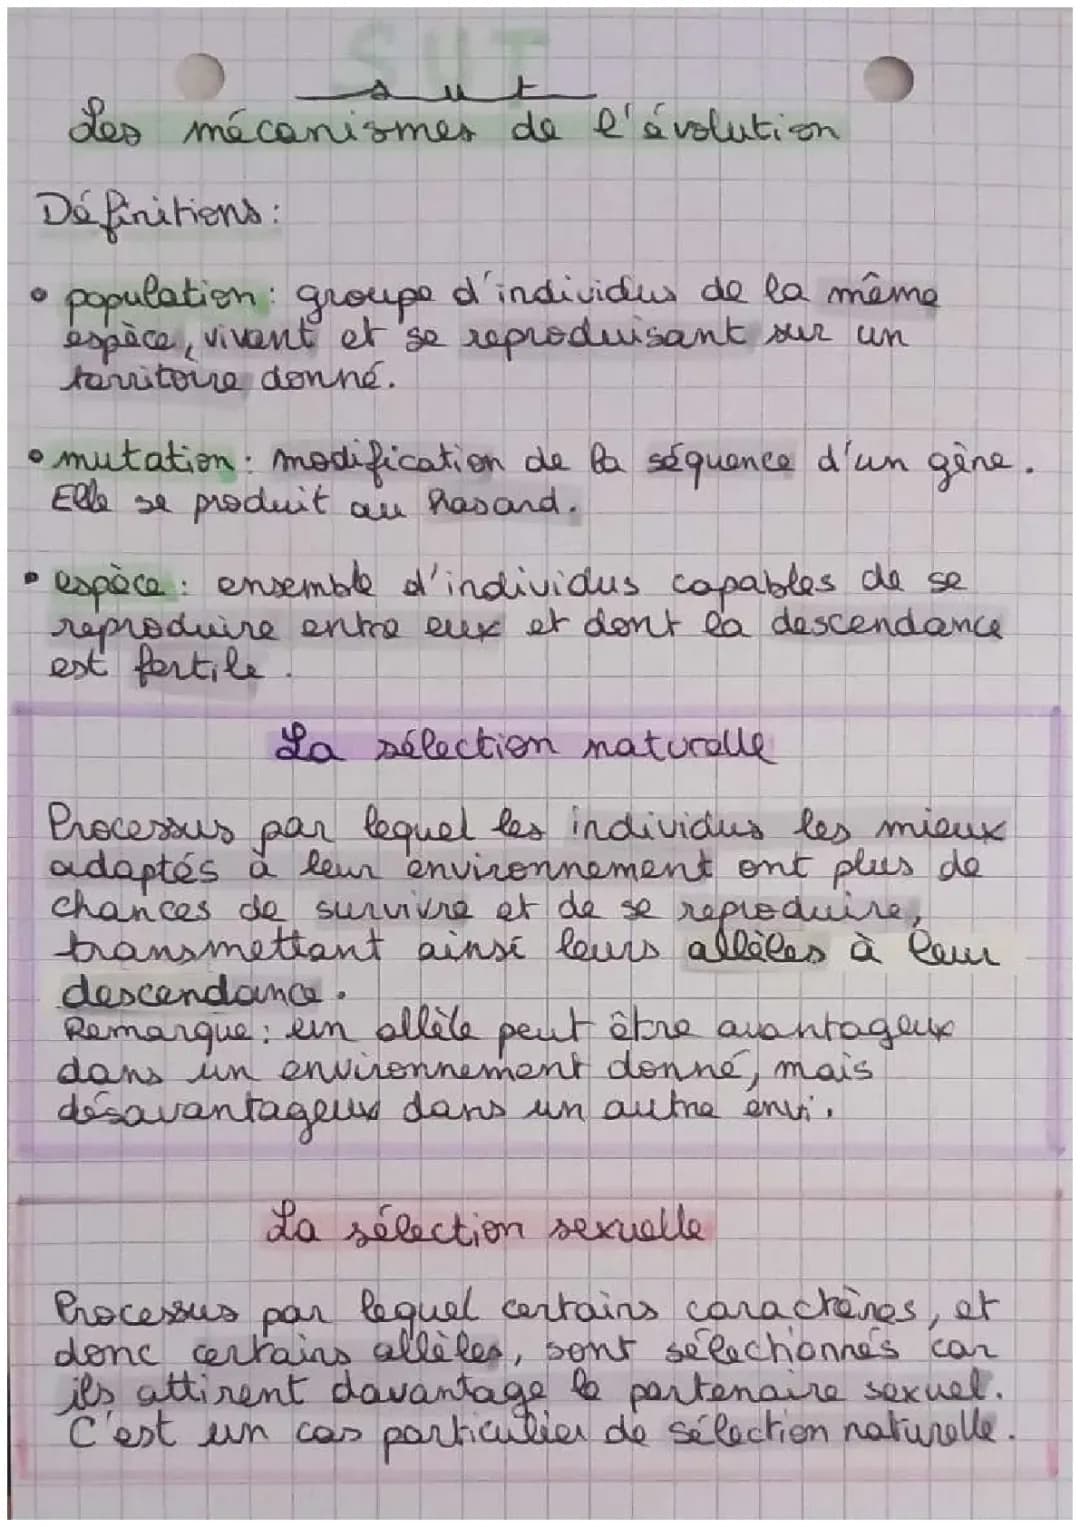 SUT
svt
Les mécanismes de l'évolution
Définitions :
• population : groupe d'individus de la même
espèce, vivant et se reproduisant sur un
territoire donné.
• mutation : modification de la séquence d'un gène.
Elle se produit au hasard.
• espèce : ensemble d'individus capables de se
reproduire entre eux et dont la descendance
est fertile.
La sélection naturelle
Processus par lequel les individus les mieux
adaptés à leur environnement ont plus de
chances de survivre et de se reproduire,
transmettant ainsi leurs allèles à leur
descendance.
Remarque : un allèle peut être avantageux
dans un environnement donné, mais
désavantageux dans un autre envi.
La sélection sexuelle
Processus par lequel certains caractères, et
donc certains allèles, sont sélectionnés car
ils attirent davantage le partenaire sexuel.
C'est un cas particulier de sélection naturelle.